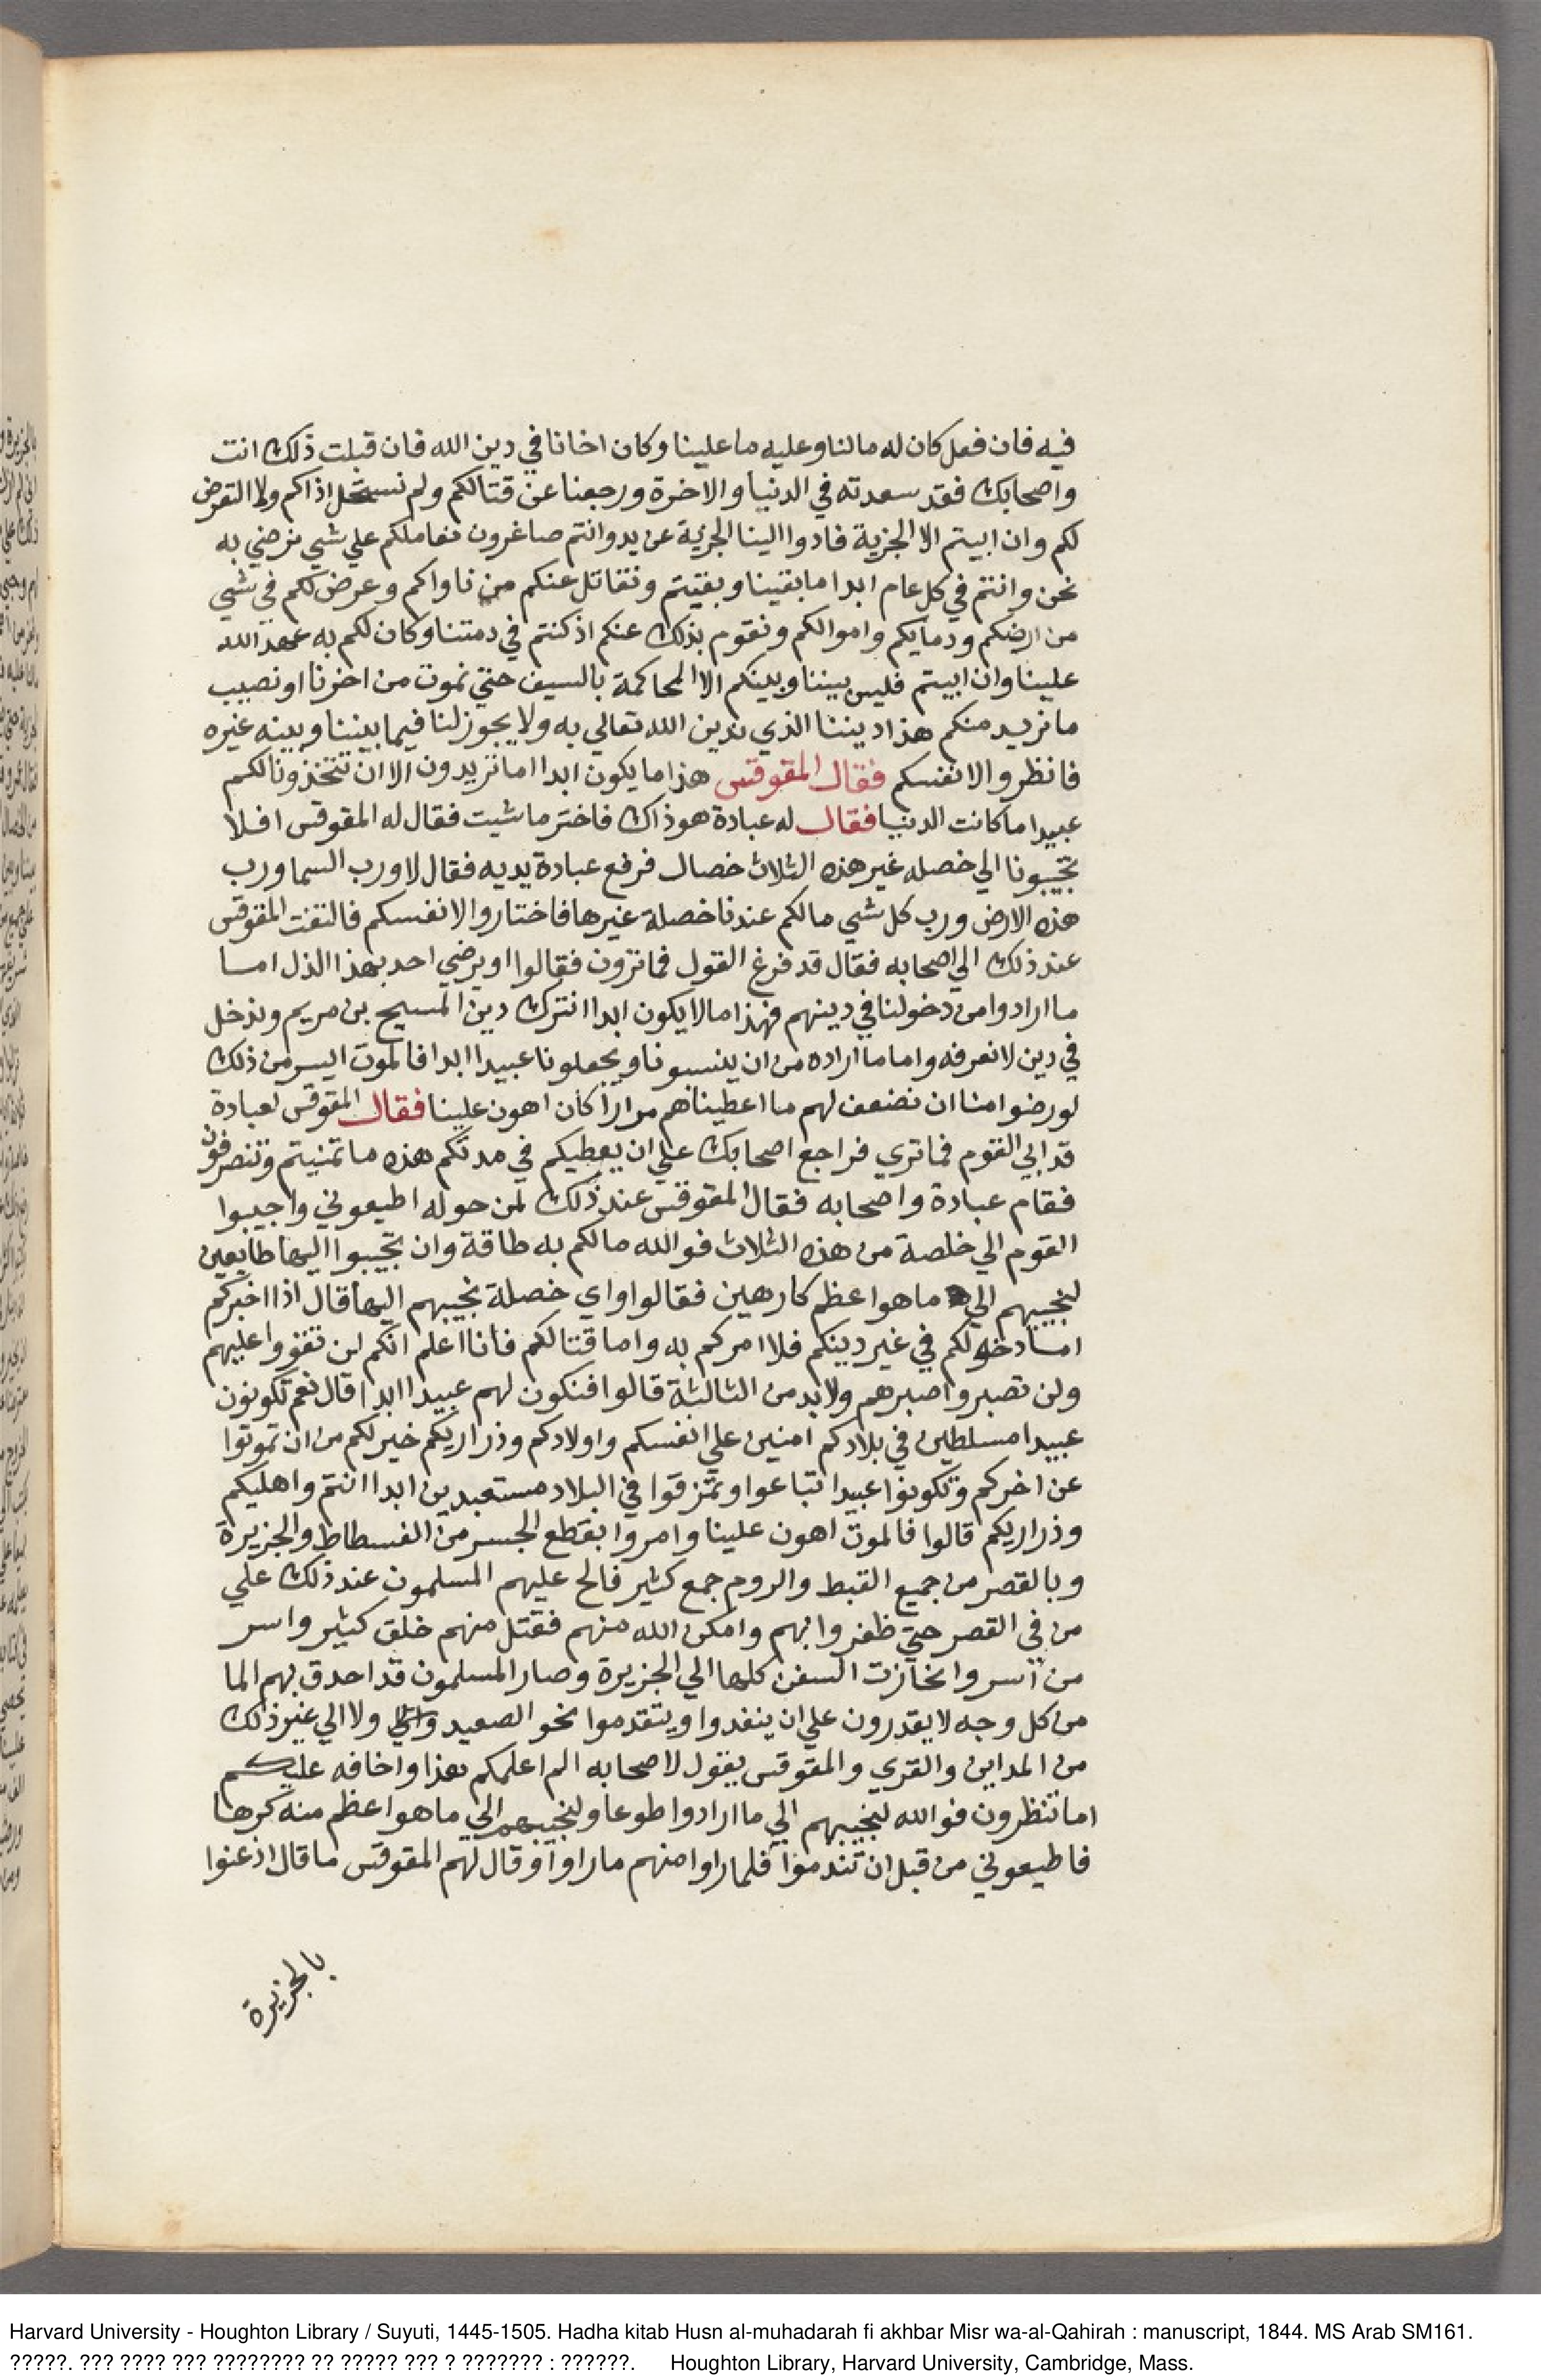 فيه فان فعل كان له مالنا وعليه ما علينا وكان اخانا في دين الله فان قبلت ذلك انت
واصحابك فقد سعدته في الدنيا والاخرة ورجعنا عن قتالكم ولم نستحل اذاكم ولا التعرض
لكم وان ابيتم الا الجزية فادوا الينا الجزية عن يد وانتم صاغرون نعاملكم علي شي نرضي به
نحن وانتم في كل عام ابدا ما بقينا وبقيتم ونقاتل عنكم من ناواكم وعرض لكم في شي
من ارضكم ودمايكم واموالكم ونقوم بذلك عنكم اذ كنتم في دمتنا وكان لكم به عهد الله
علينا وان ابيتم فليس بيننا وبينكم الا المحاكمة بالسيف حتي نموت من اخرنا او نصيب
ما نريد منكم هذا ديننا الذي ندين الله تعالي به ولا يجوز لنا فيما بيننا وبينه غيره
فانظروا لانفسكم فقال المقوقس هذا ما يكون ابدا ما تريدون الا ان تتخذونا لكم
عبيدا ما كانت الدنيا فقال له عبادة هو ذاك فاختر ما شيت فقال له المقوقس افلا
تجيبونا الي خصله غير هذه الثلاث خصال فرفع عبادة يديه فقال لا ورب السما ورب
هذه الارض ورب كل شي مالكم عندنا خصلة غيرها فاختاروا لانفسكم فالتفت المقوقس
عند ذلك الي اصحابه فقال قد فرغ القول فما ترون فقالوا اويرضي احد بهذا الذل اما
ما ارادوا من دخولنا في دينهم فهذا مالا يكون ابدا نترك دين المسيح بن مريم وندخل
في دين لا نعرفه واما ما اراده من ان ينسبونا ويجعلونا عبيدا ابدا فالموت ايسر من ذلك
لو رضوا منا ان نضعف لهم ما اعطيناهم مرارا كان اهون علينا فقال المقوقس لعبادة
قد ابي القوم فما تري فراجع اصحابك علي ان يعطيكم في مدتكم هذه ما تمنيتم وتنصرفون
فقام عبادة واصحابه فقال المقوقس عند ذلك لمن حوله اطيعوني واجيبوا
القوم الي خلصة من هذه الثلاث فوالله مالكم به طاقة وان تجيبوا اليها طايعين
لنجيبهم الي ما هو اعظم كارهين فقالوا واي خصلة نجيبهم اليها قال اذا اخبركم
اما دخولكم في غير دينكم فلا امركم به واما قتالكم فانا اعلم انكم لن تقووا عليهم
ولن تصبروا صبرهم ولا بد من الثالثة قالوا فنكون لهم عبيدا ابدا قال نعم تكونون
عبيدا مسلطين في بلادكم امنين علي انفسكم واولادكم وذراريكم خير لكم من ان تموتوا
عن اخركم وتكونوا عبيدا تباعوا وتمزقوا في البلاد مستعبدين ابدا انتم واهليكم
وذراريكم قالوا فالموت اهون علينا وامروا بقطع الجسر من الفسطاط والجزيرة
وبالقصر من جميع القبط والروم جمع كثير فالح عليهم المسلمون عند ذلك علي
من في القصر حتي ظفروا بهم وامكن الله منهم فقتل منهم خلق كثير واسر
من اسر وانحازت السفن كلها الي الجزيرة وصار المسلمون قد احدق بهم الما
من كل وجه لا يقدرون علي ان ينفدوا ويتقدموا نحو الصعيد ولا الي غير ذلك
من المداين والقري والمقوقس يقول لاصحابه الم اعلمكم بهذا واخافه عليكم
اما تنظرون فوالله لنجيبهم الي ما ارادوا طوعا ولنجيبهم الي ما هو اعظم منه كرها
فاطيعوني من قبل ان تندموا فلما راوا منهم ما راوا وقال لهم المقوقس ما قال اذعنوا
بالجزيرة
Harvard University - Houghton Library / Suyuti, 1445-1505. Hadha kitab Husn al-muhadarah fi akhbar Misr wa-al-Qahirah : manuscript, 1844. MS Arab SM161.
?????. ??? ???? ??? ???????? ?? ????? ??? ? ??????? : ??????. Houghton Library, Harvard University, Cambridge, Mass.